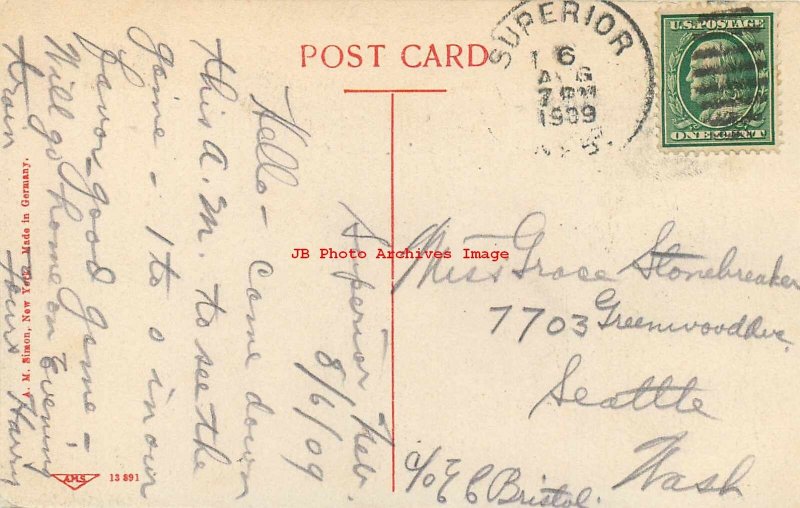 POST CARD
SUPERIOR
6
AUG
7 PM
1909
U.S. POSTAGE
ONE CENT
Superior Neb.
8/6/09
Hello - Came down
this A.M. to see the
game - 1 to 0 in our
favor - good game -
Will go home on Evening
train Yours Harry
JB Photo Archives Image
Miss Grace Stonebreaker
7703 Greenwood Ave
Seattle
Wash
c/o E C Bristol.
A. M. Simon, New York. Made in Germany.
AMS
13891